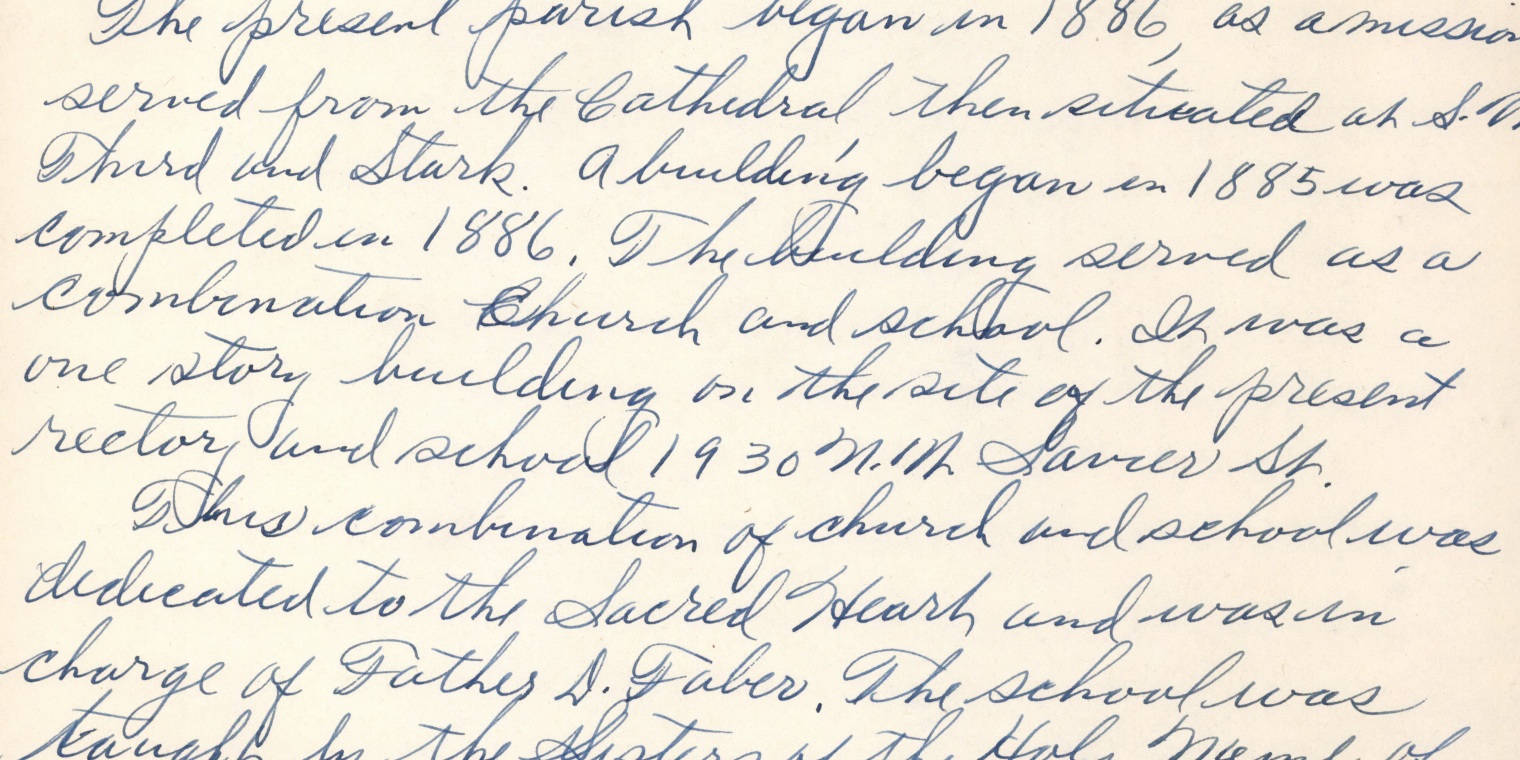 The present parish began in 1886, as a mission
served from the Cathedral then situated at S.
Third and Stark. A building began in 1885 was
completed in 1886. The building served as a
combination Church and school. It was a
one story building on the site of the present
rectory and school 1930 N.W. Savier St.
This combination of church and school was
dedicated to the Sacred Heart and was in
charge of Father D. Faber. The school was
taught by the Sisters of the Holy Names of